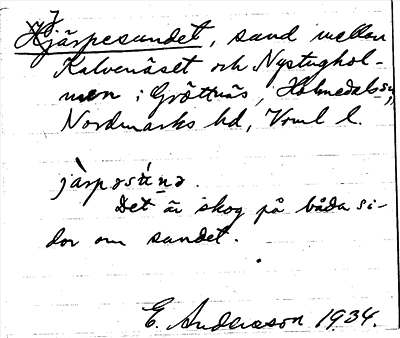 Hjärpesundet, sund mellan
Kalvenäset och Nystughol-
men i Gröttnäs, Holmedals sn,
Nordmarks hd, Vrml l.
Det är skog på båda si-
dor om sundet.
E. Andersson 1934.